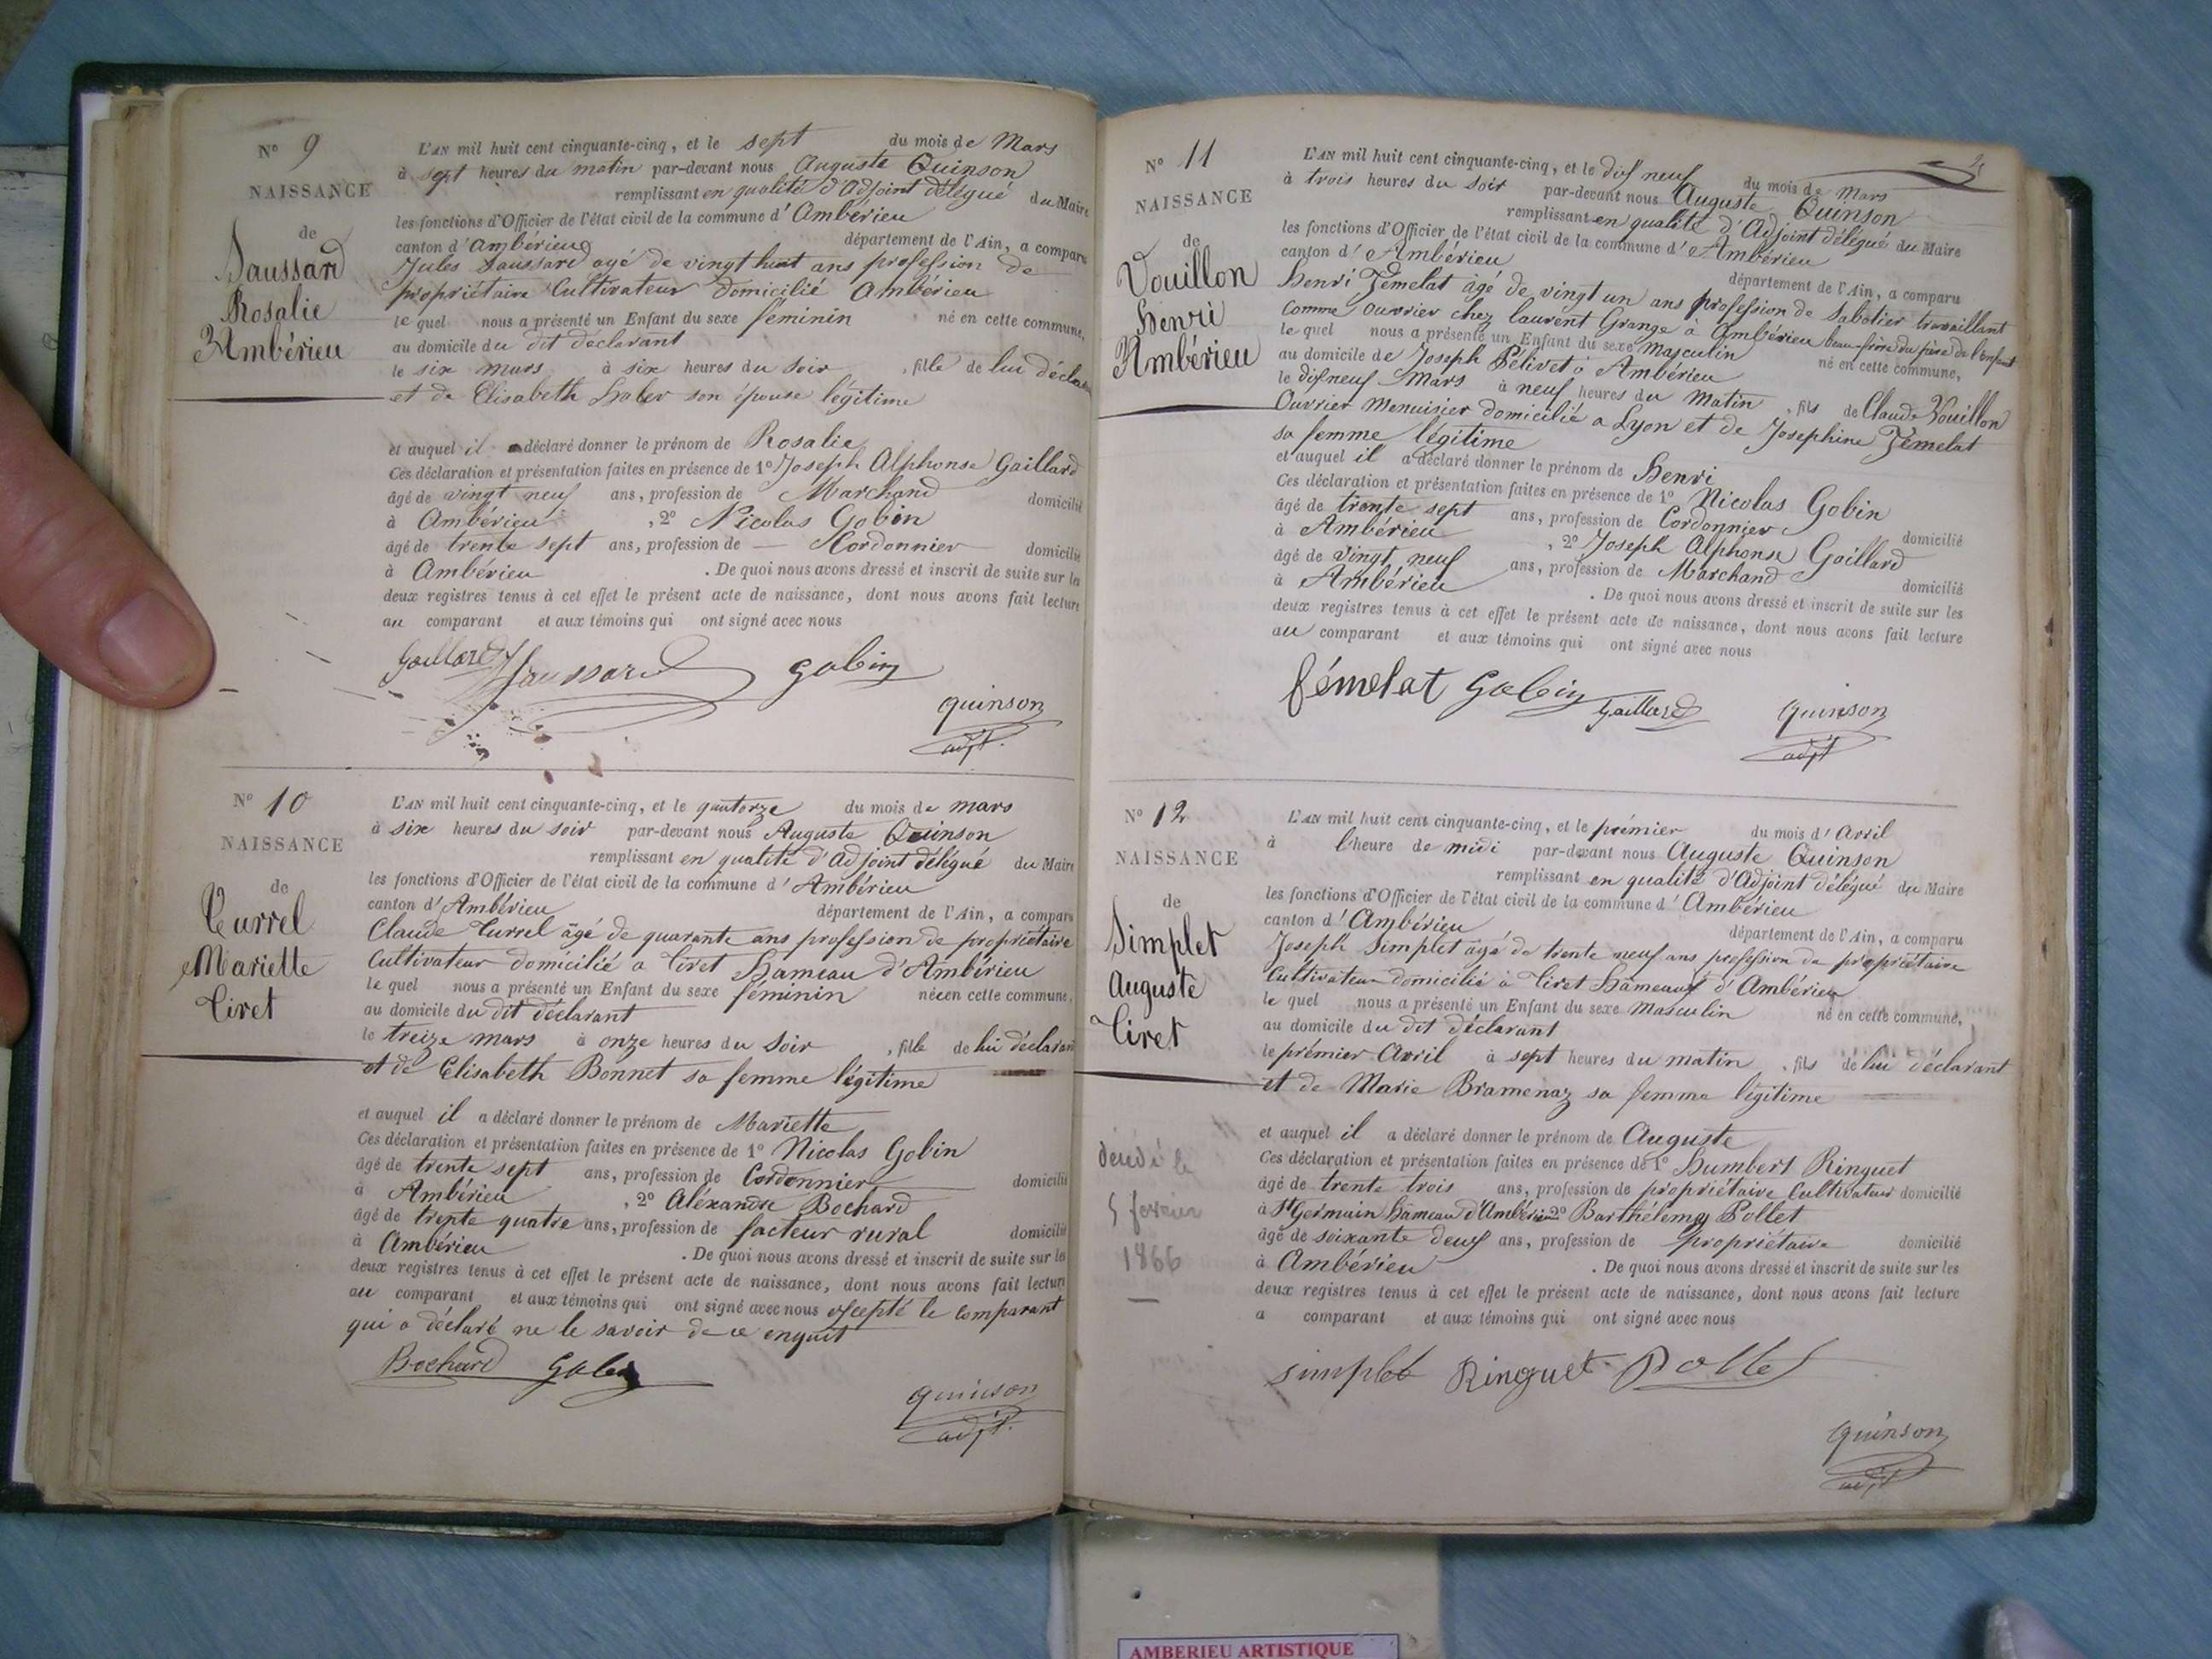 Nº 9
NAISSANCE
de
Saussard
Rosalie
Ambérieu
L'AN mil huit cent cinquante-cinq, et le sept du mois de Mars
à sept heures du matin par-devant nous Auguste Quinson
remplissant en qualité d'Adjoint délégué du Maire
les fonctions d'Officier de l'état civil de la commune d'Ambérieu
canton d'Ambérieu département de l'Ain, a comparu
Jules Saussard agé de vingt huit ans profession de
propriétaire Cultivateur domicilié Ambérieu
le quel nous a présenté un Enfant du sexe féminin né en cette commune,
au domicile du dit déclarant
le six mars à six heures du soir, fille de lui déclarant
et de Elisabeth son épouse légitime
et auquel il a déclaré donner le prénom de Rosalie
Ces déclaration et présentation faites en présence de 1º Joseph Alphonse Gaillard
âgé de vingt neuf ans, profession de Marchand domicilié
à Ambérieu, 2º Nicolas Gobin
âgé de trente sept ans, profession de Cordonnier domicilié
à Ambérieu. De quoi nous avons dressé et inscrit de suite sur les
deux registres tenus à cet effet le présent acte de naissance, dont nous avons fait lecture
au comparant et aux témoins qui ont signé avec nous
Gaillard J Saussard Gobin
quinson
adjt.
Nº 10
NAISSANCE
de
Currel
Mariette
Tiret
L'AN mil huit cent cinquante-cinq, et le quatorze du mois de mars
à six heures du soir par-devant nous Auguste Quinson
remplissant en qualité d'Adjoint délégué du Maire
les fonctions d'Officier de l'état civil de la commune d'Ambérieu
canton d'Ambérieu département de l'Ain, a comparu
Claude Currel âgé de quarante ans profession de propriétaire
Cultivateur domicilié a Tiret Hameau d'Ambérieu
le quel nous a présenté un Enfant du sexe féminin née en cette commune,
au domicile du dit déclarant
le treize mars à onze heures du soir, fille de lui déclarant
et de Elisabeth Bonnet sa femme légitime
et auquel il a déclaré donner le prénom de Mariette
Ces déclaration et présentation faites en présence de 1º Nicolas Gobin
âgé de trente sept ans, profession de Cordonnier domicilié
à Ambérieu, 2º Aléxandre Bochard
âgé de trente quatre ans, profession de facteur rural domicilié
à Ambérieu. De quoi nous avons dressé et inscrit de suite sur les
deux registres tenus à cet effet le présent acte de naissance, dont nous avons fait lecture
au comparant et aux témoins qui ont signé avec nous excepté le comparant
qui a déclaré ne le savoir de ce enquit
Bochard Gobin
quinson
adjt.
Nº 11
NAISSANCE
de
Vouillon
Henri
Ambérieu
L'AN mil huit cent cinquante-cinq, et le dix neuf du mois de Mars
à trois heures du soir par-devant nous Auguste Quinson
remplissant en qualité d'Adjoint délégué du Maire
les fonctions d'Officier de l'état civil de la commune d'Ambérieu
canton d'Ambérieu département de l'Ain, a comparu
Henri Femelat âgé de vingt un ans profession de Sabotier travaillant
comme ouvrier chez Laurent Grange à Ambérieu beau-frère du père de l'enfant
le quel nous a présenté un Enfant du sexe Masculin né en cette commune,
au domicile de Joseph Pélivet à Ambérieu
le dix neuf Mars à neuf heures du Matin, fils de Claude Vouillon
Ouvrier Menuisier domicilié a Lyon et de Josephine Femelat
sa femme légitime
et auquel il a déclaré donner le prénom de Henri
Ces déclaration et présentation faites en présence de 1º Nicolas Gobin
âgé de trente sept ans, profession de Cordonnier domicilié
à Ambérieu, 2º Joseph Alphonse Gaillard
âgé de vingt neuf ans, profession de Marchand domicilié
à Ambérieu. De quoi nous avons dressé et inscrit de suite sur les
deux registres tenus à cet effet le présent acte de naissance, dont nous avons fait lecture
au comparant et aux témoins qui ont signé avec nous
fémelat Gobin Gaillard
quinson
adjt
Nº 12
NAISSANCE
de
Simplet
Auguste
Tiret
décédé le
5 fevrier
1866
L'AN mil huit cent cinquante-cinq, et le prémier du mois d'Avril
à l'heure de midi par-devant nous Auguste Quinson
remplissant en qualité d'Adjoint délégué du Maire
les fonctions d'Officier de l'état civil de la commune d'Ambérieu
canton d'Ambérieu département de l'Ain, a comparu
Joseph Simplet âgé de trente neuf ans profession de propriétaire
Cultivateur domicilié à Tiret Hameau d'Ambérieu
le quel nous a présenté un Enfant du sexe Masculin né en cette commune,
au domicile du dit déclarant
le prémier Avril à sept heures du matin, fils de lui déclarant
et de Marie Bramenaz sa femme légitime
et auquel il a déclaré donner le prénom de Auguste
Ces déclaration et présentation faites en présence de 1º Humbert Ringuet
âgé de trente trois ans, profession de propriétaire Cultivateur domicilié
à St Germain hameau d'Ambérieu 2º Barthélemy Pollet
âgé de soixante deux ans, profession de propriétaire domicilié
à Ambérieu. De quoi nous avons dressé et inscrit de suite sur les
deux registres tenus à cet effet le présent acte de naissance, dont nous avons fait lecture
a comparant et aux témoins qui ont signé avec nous
simplet Ringuet Pollet
quinson
adjt
AMBERIEU ARTISTIQUE